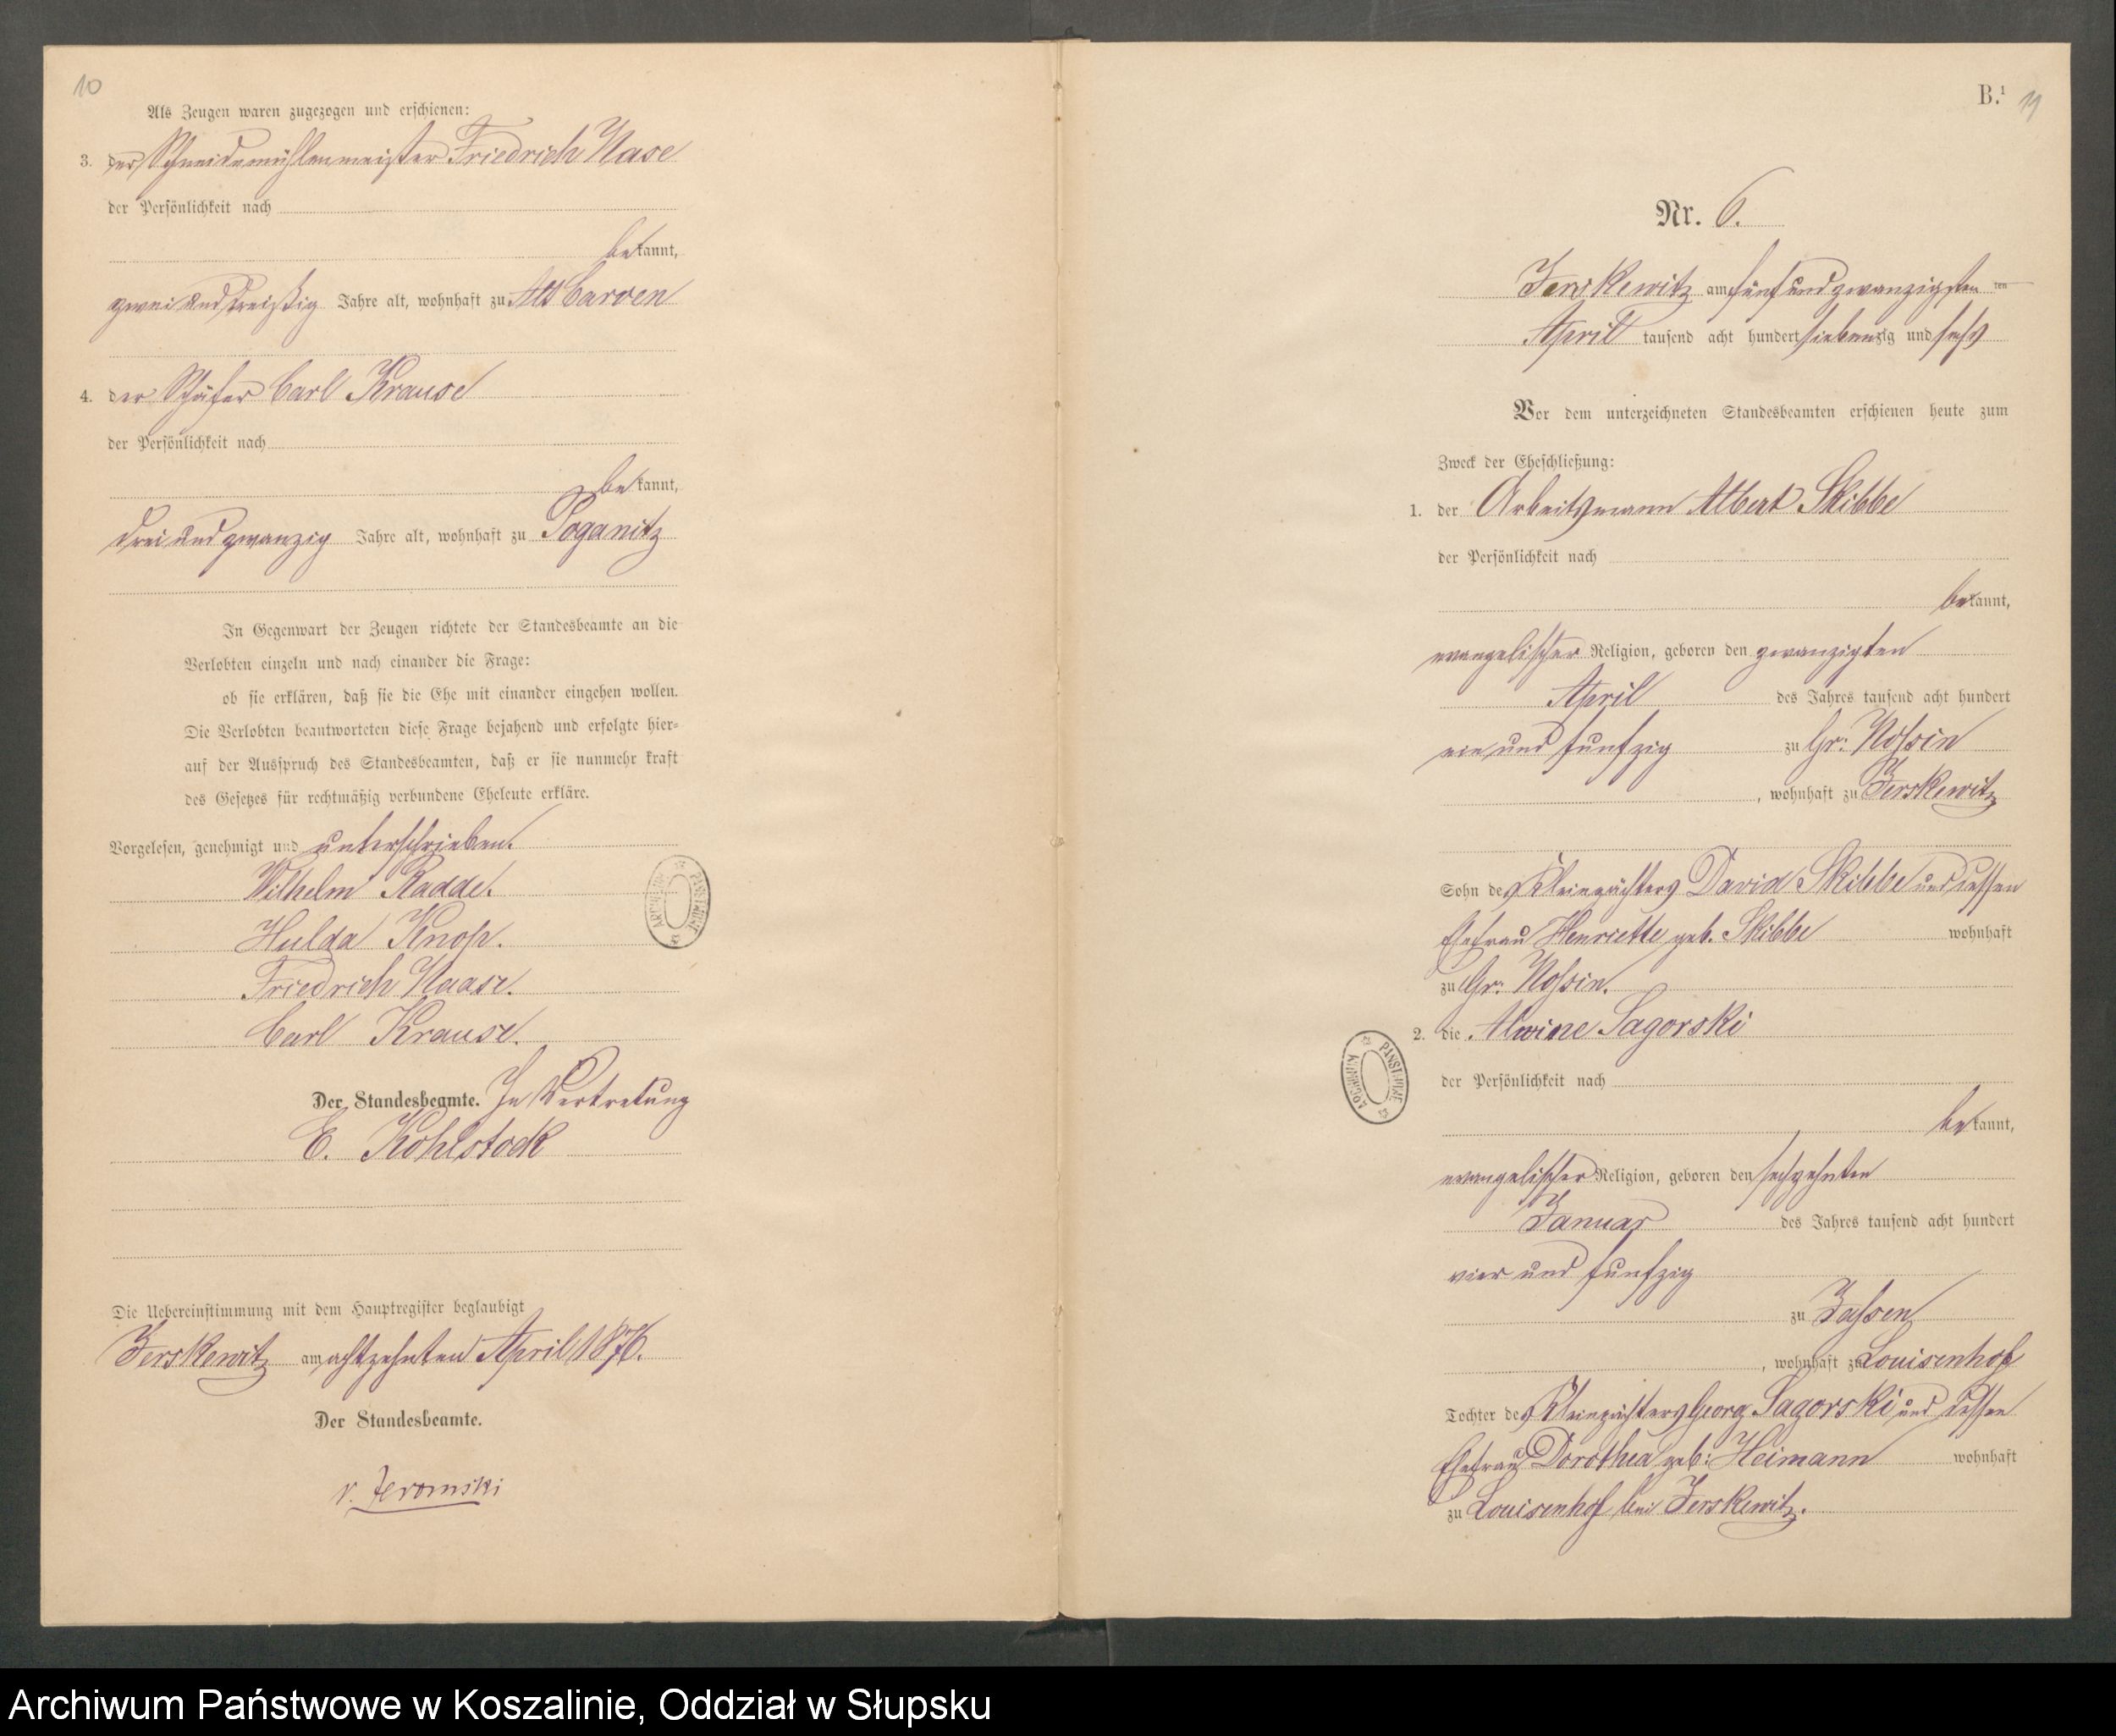 10
Als Zeugen waren zugezogen und erschienen:
3. der Schneidemühlenmeister Friedrich Nase
der Persönlichkeit nach
bekannt,
zwei und dreißig Jahre alt, wohnhaft zu Alt Carven
4. der Schäfer Carl Krause
der Persönlichkeit nach
bekannt,
drei und zwanzig Jahre alt, wohnhaft zu Poganitz
In Gegenwart der Zeugen richtete der Standesbeamte an die
Verlobten einzeln und nach einander die Frage:
ob sie erklären, daß sie die Ehe mit einander eingehen wollen.
Die Verlobten beantworteten diese Frage bejahend und erfolgte hier-
auf der Ausspruch des Standesbeamten, daß er sie nunmehr kraft
des Gesetzes für rechtmäßig verbundene Eheleute erkläre.
Vorgelesen, genehmigt und unterschrieben.
Wilhelm Radde.
Hulda Knop.
Friedrich Naase.
Carl Krause.
Der Standesbeamte. In Vertretung
E. Kohlstock
Die Uebereinstimmung mit dem Hauptregister beglaubigt
Jerskewitz am achtzehnten April 1876.
Der Standesbeamte.
v. Jeromski
ARCHIWUM PAŃSTWOWE
B.¹ 11
Nr. 6.
Jerskewitz am fünf und zwanzigsten ten
April tausend acht hundert siebenzig und sechs
Vor dem unterzeichneten Standesbeamten erschienen heute zum
Zweck der Eheschließung:
1. der Arbeitsmann Albert Skibbe
der Persönlichkeit nach
bekannt,
evangelischer Religion, geboren den zwanzigsten
April des Jahres tausend acht hundert
ein und funfzig zu Gr: Nossin
, wohnhaft zu Jerskewitz
Sohn des Kleinpächters David Skibbe und dessen
Ehefrau Henriette geb. Skibbe wohnhaft
zu Gr: Nossin.
2. die Alwine Sagorski
der Persönlichkeit nach
bekannt,
evangelischer Religion, geboren den sechzehnten
Januar des Jahres tausend acht hundert
vier und funfzig
zu Jassen
, wohnhaft zu Louisenhof
Tochter des Kleinpächters Georg Sagorski und dessen
Ehefrau Dorothea geb: Heimann wohnhaft
zu Louisenhof bei Jerskewitz.
ARCHIWUM PAŃSTWOWE
Archiwum Państwowe w Koszalinie, Oddział w Słupsku